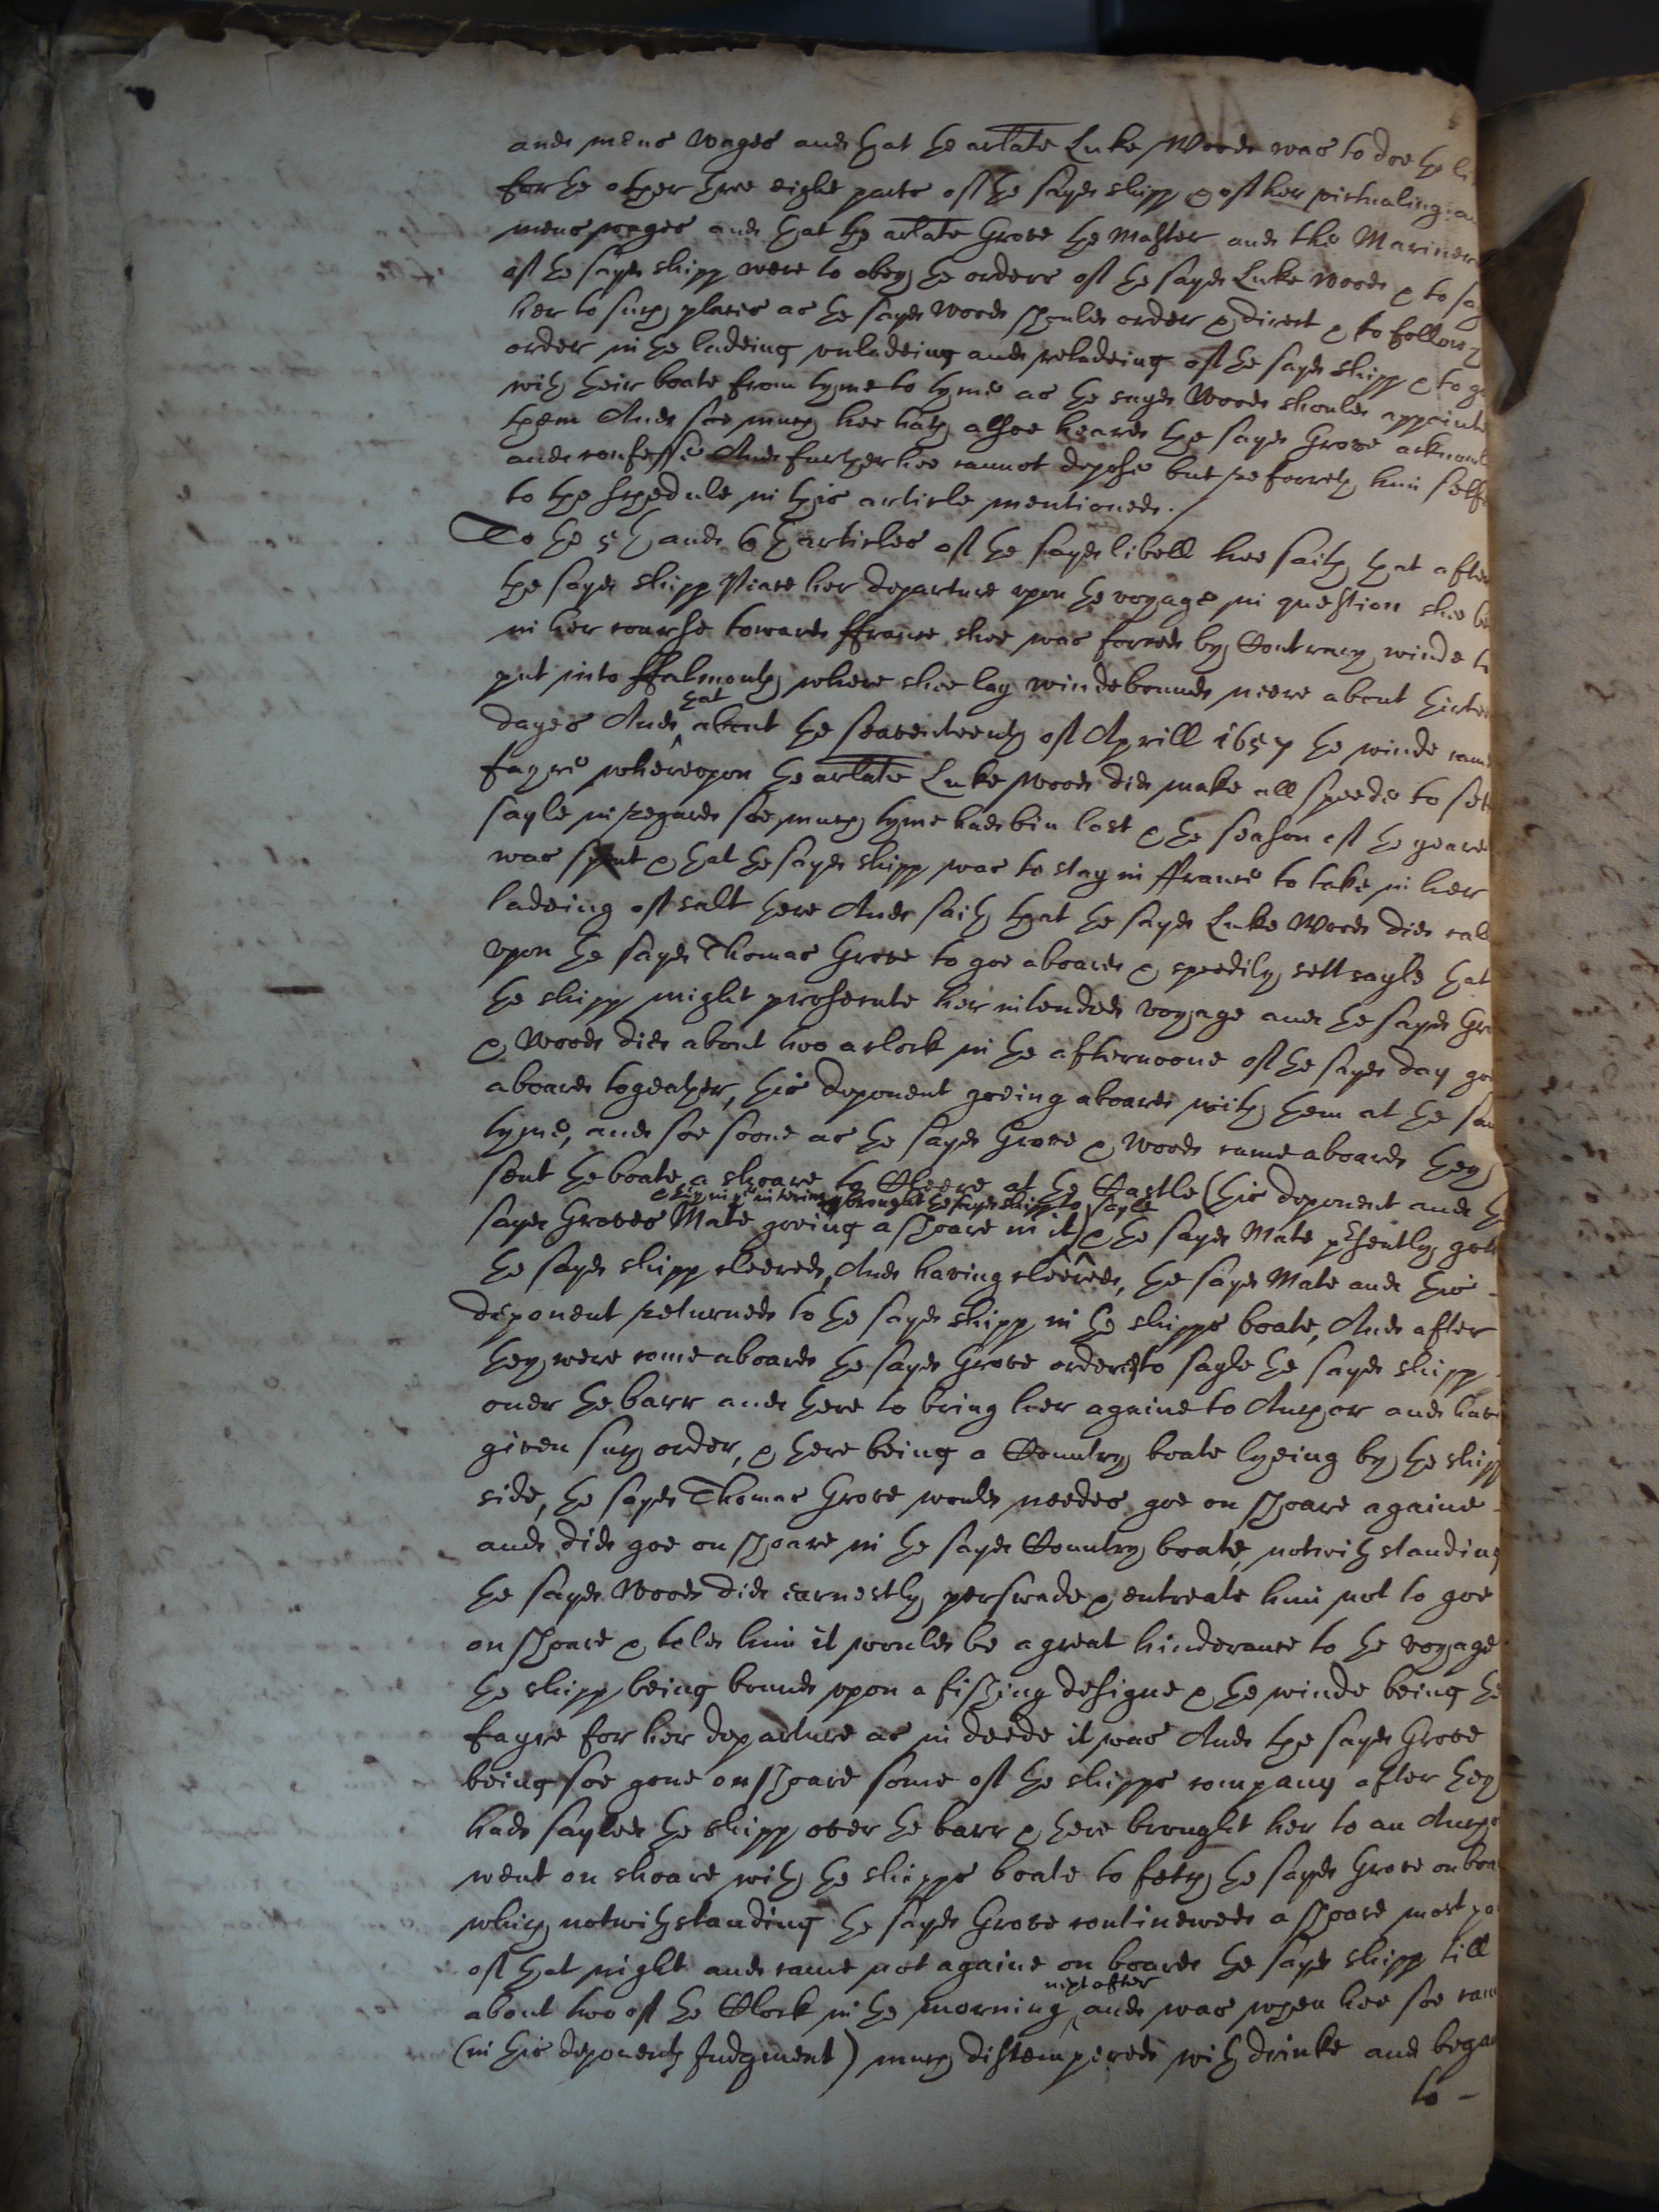 and mens wages and that the arlate Luke Woods was to doe the li
for the other three eight parts of the sayd shipp & of her victualing a
mens wages and that the arlate Grove the Master and the Mariners
of the sayd shipp were to obey the orders of the sayd Luke Woods & to sa
her to such places as the sayd Woods should order & direct & to follow
order in the ladeing unladeing and reladeing of the sayd shipp & to g
with their boate from tyme to tyme as the sayd Woods should appointe
them And soe much hee hath alsoe heard the sayd Grove acknowl
and confesse And further hee cannot depose but referreth him selfe
to the schedule in this article mentioned./
To the 5th and 6th articles of the sayd libell hee saith that after
the sayd shipp her departure upon the voyage in question shee be
in her course towards ffrance shee was forced by Contrary winde to
put into ffalmouth where shee lay windebound neere about thirte
dayes And that about the seaventeenth of Aprill 1657 the winde came
fayre whereupon the arlate Luke Woods did make all speede to sett
sayle in regard soe much tyme had bin lost & the season of the yeare
was spent & that the sayd shipp was to stay in ffrance to take in her
ladeing of salt there And saith that the sayd Luke Woods did call
upon the sayd Thomas Grove to goe aboard & speedily sett sayle that
the shipp might prosecute her intended voyage and the sayd Gro
& Woods did about two aclock in the afternoone of the sayd day goe
aboard togeather, this deponent goeing aboard with them at the sa
tyme, and soe soone as the sayd Grove & Woods came aboard they
sent the boate a shoare to Cleere at the Castle (this deponent and th
& they in ye interim brought the sayd shipp to sayle
sayd Groves Mate goeing a shoare in it) & the sayd Mate presently gott
the sayd shipp cleered, And having cleered, the sayd Mate and this
deponent returned to the sayd shipp in the shipps boate, And after
they were come aboard the sayd Grove ordered to sayle the sayd shipp
over the barr and there to bring her againe to Anchor and havi
given such order, & there being a Country boate lyeing by the shipp
side, the sayd Thomas Grove would needes goe on shoare againe
and did goe on shoare in the sayd Country boate, notwithstanding
the sayd Woods did earnestly perswade & entreate him not to goe
on shoare & told him it would be a great hinderance to the voyage
the shipp being bound upon a fishing designe & the winde being the
fayre for her departure as in deede it was And the sayd Grove
being soe gone on shoare some of the shipps company after they
had sayled the shipp over the barr & there brought her to an Ancho
went on shoare with the shipps boate to fetch the sayd Grove on boa
which notwithstanding the sayd Grove continewed a shoare most pa
of that night and came not againe on board the sayd shipp till
about two of the Clock in the morning next after, and was when hee soe cam
(in this deponents Judgment) much distempered with drinke and began
to -